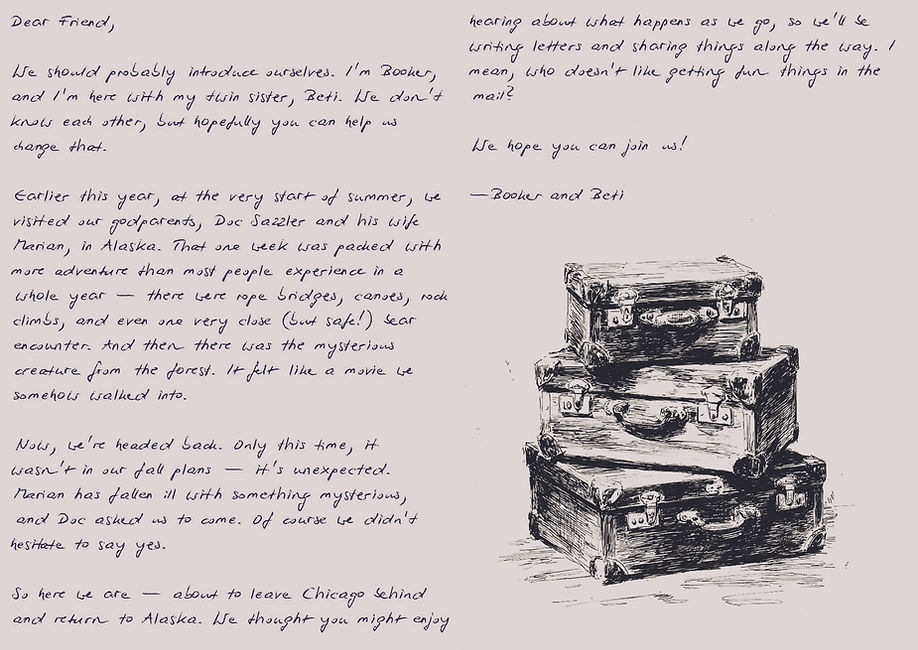 Dear Friend,
We should probably introduce ourselves. I'm Booker,
and I'm here with my twin sister, Beti. We don't
know each other, but hopefully you can help us
change that.
Earlier this year, at the very start of summer, we
visited our godparents, Doc Sazzler and his wife
Marian, in Alaska. That one week was packed with
more adventure than most people experience in a
whole year — there were rope bridges, canoes, rock
climbs, and even one very close (but safe!) bear
encounter. And then there was the mysterious
creature from the forest. It felt like a movie we
somehow walked into.
Now, we're headed back. Only this time, it
wasn't in our fall plans — it's unexpected.
Marian has fallen ill with something mysterious,
and Doc asked us to come. Of course we didn't
hesitate to say yes.
So here we are — about to leave Chicago behind
and return to Alaska. We thought you might enjoy
hearing about what happens as we go, so we'll be
writing letters and sharing things along the way. I
mean, who doesn't like getting fun things in the
mail?
We hope you can join us!
—Booker and Beti